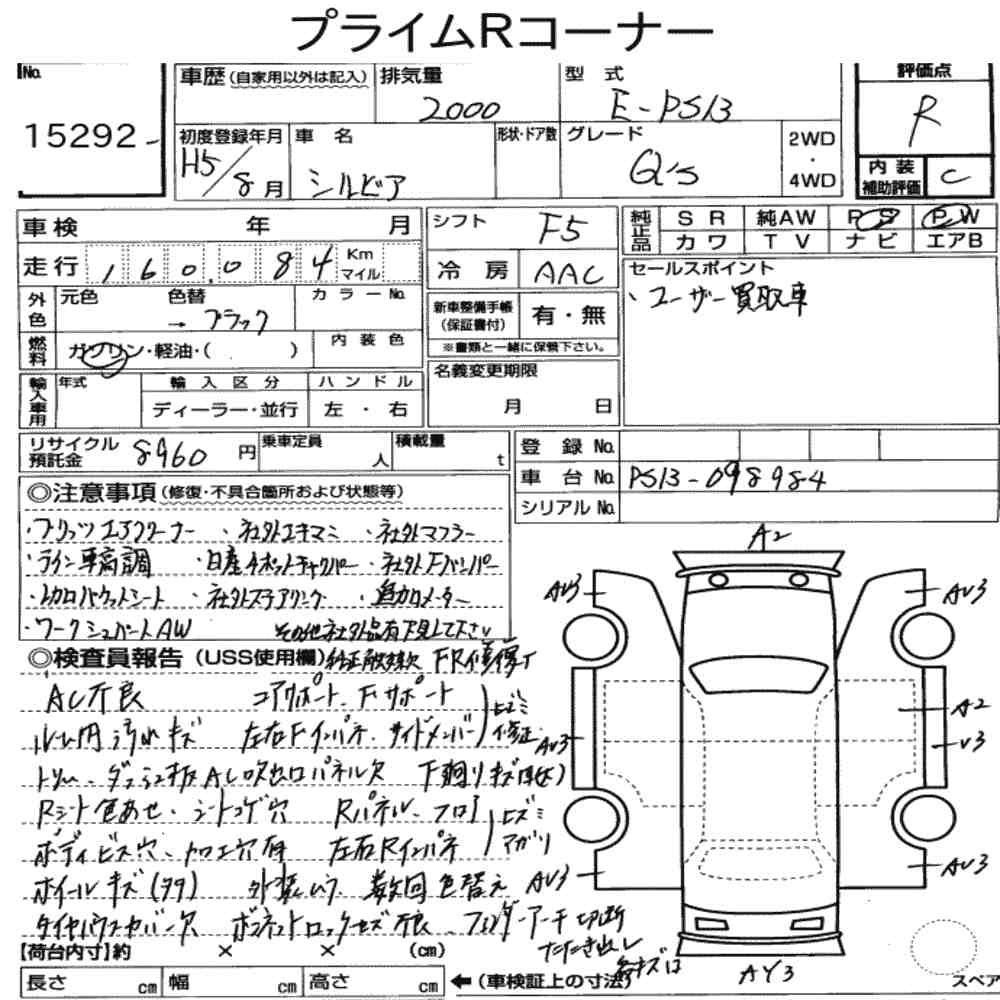 プライムRコーナー
No.
15292
車歴 (自家用以外は記入)
排気量
2000
型 式
E-PS13
評価点
R
初度登録年月
H5/8月
車 名
シルビア
形状・ドア数
グレード
Q's
2WD
・
4WD
内 装
補助評価
C
車検 年 月
シフト
F5
純正品
S R 純AW P S P W
カ ワ T V ナ ビ エアB
走行 160,084 Km
マイル
冷 房
AAC
セールスポイント
、ユーザー買取車
外色
元色 色替
→ ブラック
カラーNo.
新車整備手帳
(保証書付)
有・無
※書類と一緒に保管下さい。
燃料
ガソリン・軽油・( )
内 装 色
輸入車用
年式
輸 入 区 分
ディーラー・並行
ハ ン ド ル
左 ・ 右
名義変更期限
月 日
リサイクル
預託金
8960 円
乗車定員
人
積載量
t
登 録 No.
車 台 No. PS13-098984
シリアル No.
◎注意事項 (修復・不具合箇所および状態等)
・ブリッツエアクリーナー ・社外エキマニ ・社外マフラー
・車高調 ・日産4ポットキャリパー ・社外Fバンパー
・レカロバケットシート ・社外ステアリング ・追加メーター
・ワーク AW その他社外品有 下見して下さい
◎検査員報告 (USS使用欄) 純正戻 欠 FR修復
AC不良 コアサポート、Fサポート
ルーム内汚れキズ 左右Fインパネ、サイドメンバー
ヒズミ
修正
ダッシュ AC吹出口パネル欠 下廻りキズ
Rシート色あせ・シートコゲ穴 Rパネル、フロア
ボディビス穴・加工穴有 左右Rインパネ
ヒズミ
アガリ
ホイールキズ 数回色替え
タイヤハウスカバー欠 ボンネットロックせず不良 フェンダーアーチ切断
たたき出し
A2
AV3
AV3
A2
AV3
V3
AV3
AV3
AY3
【荷台内寸】約 × × (cm)
長さ cm 幅 cm 高さ cm ←(車検証上の寸法)
スペア